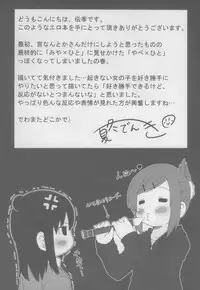 どうもこんにちは、伝季です。
このようなエロ本を手にとって頂きありがとうございます。
最初、宮なんとかさんだけにしようと思ったものの
最終的に「みや×ひと」に見せかけた「やべ×ひと」
っぽくなってしまいましたの巻。
描いてて気付きました…起きない女の子を好き勝手に
やりたいと思って描いてたら「好き勝手できるけど、
反応がないとつまんないな」と思いました。
やっぱり色んな反応や表情が見れた方が興奮しますね…
でわまたどこかで